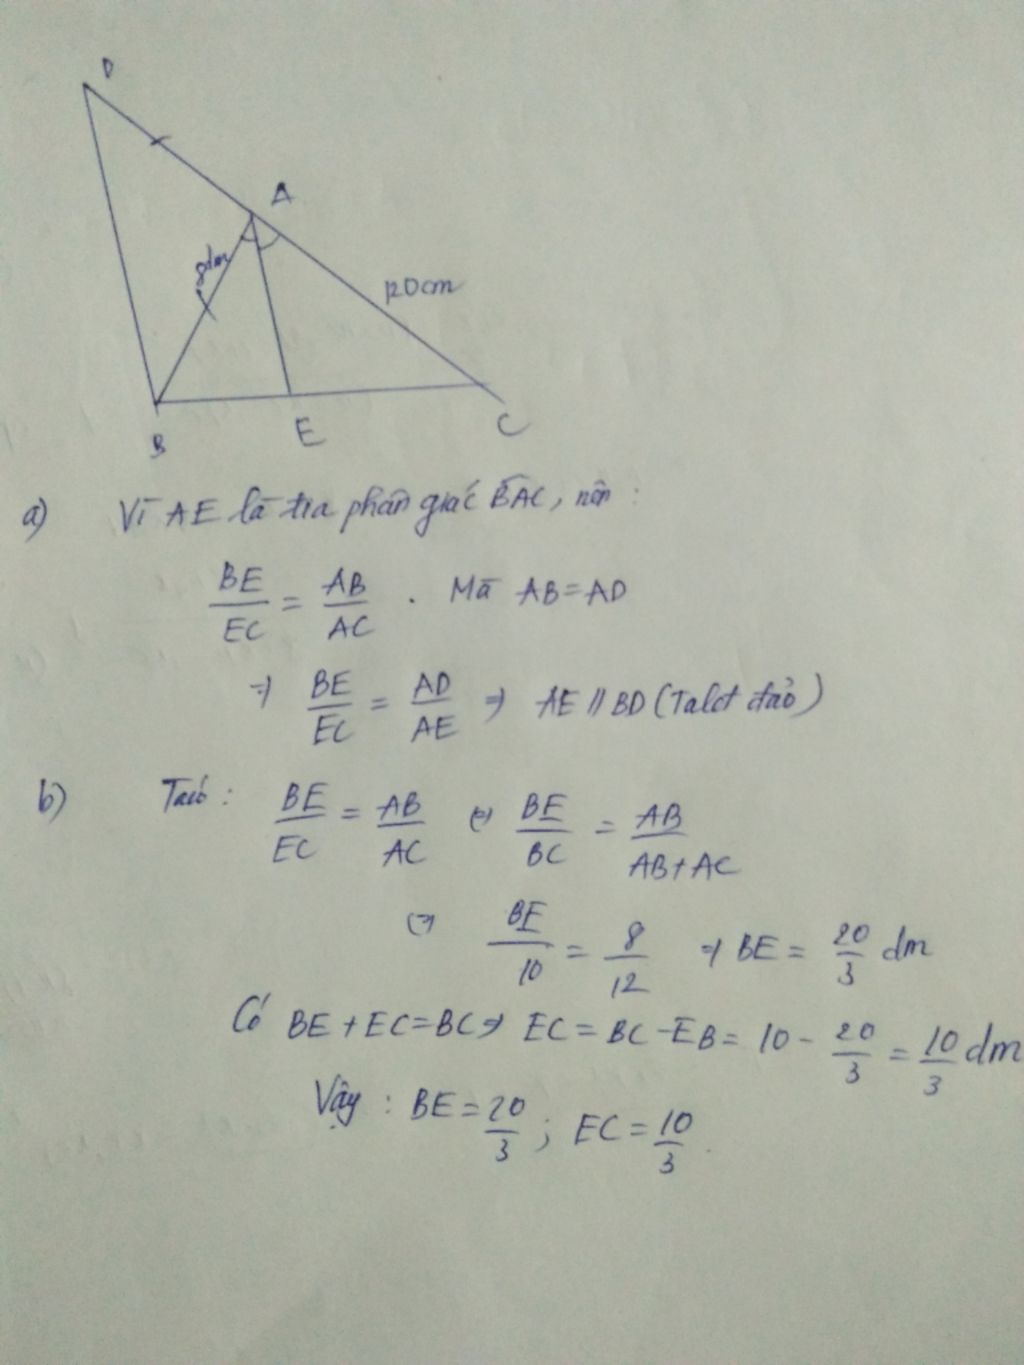 D
A
8dm
120cm
B
E
C
a) Vì AE là tia phân giác BAC, nên :
BE/EC = AB/AC . Mà AB=AD
=> BE/EC = AD/AE => AE // BD (Talet đảo)
b) Ta có : BE/EC = AB/AC <=> BE/BC = AB/AB+AC
<=> BE/10 = 8/12 => BE = 20/3 dm
Có BE + EC = BC => EC = BC - EB = 10 - 20/3 = 10/3 dm
Vậy : BE = 20/3 ; EC = 10/3 .